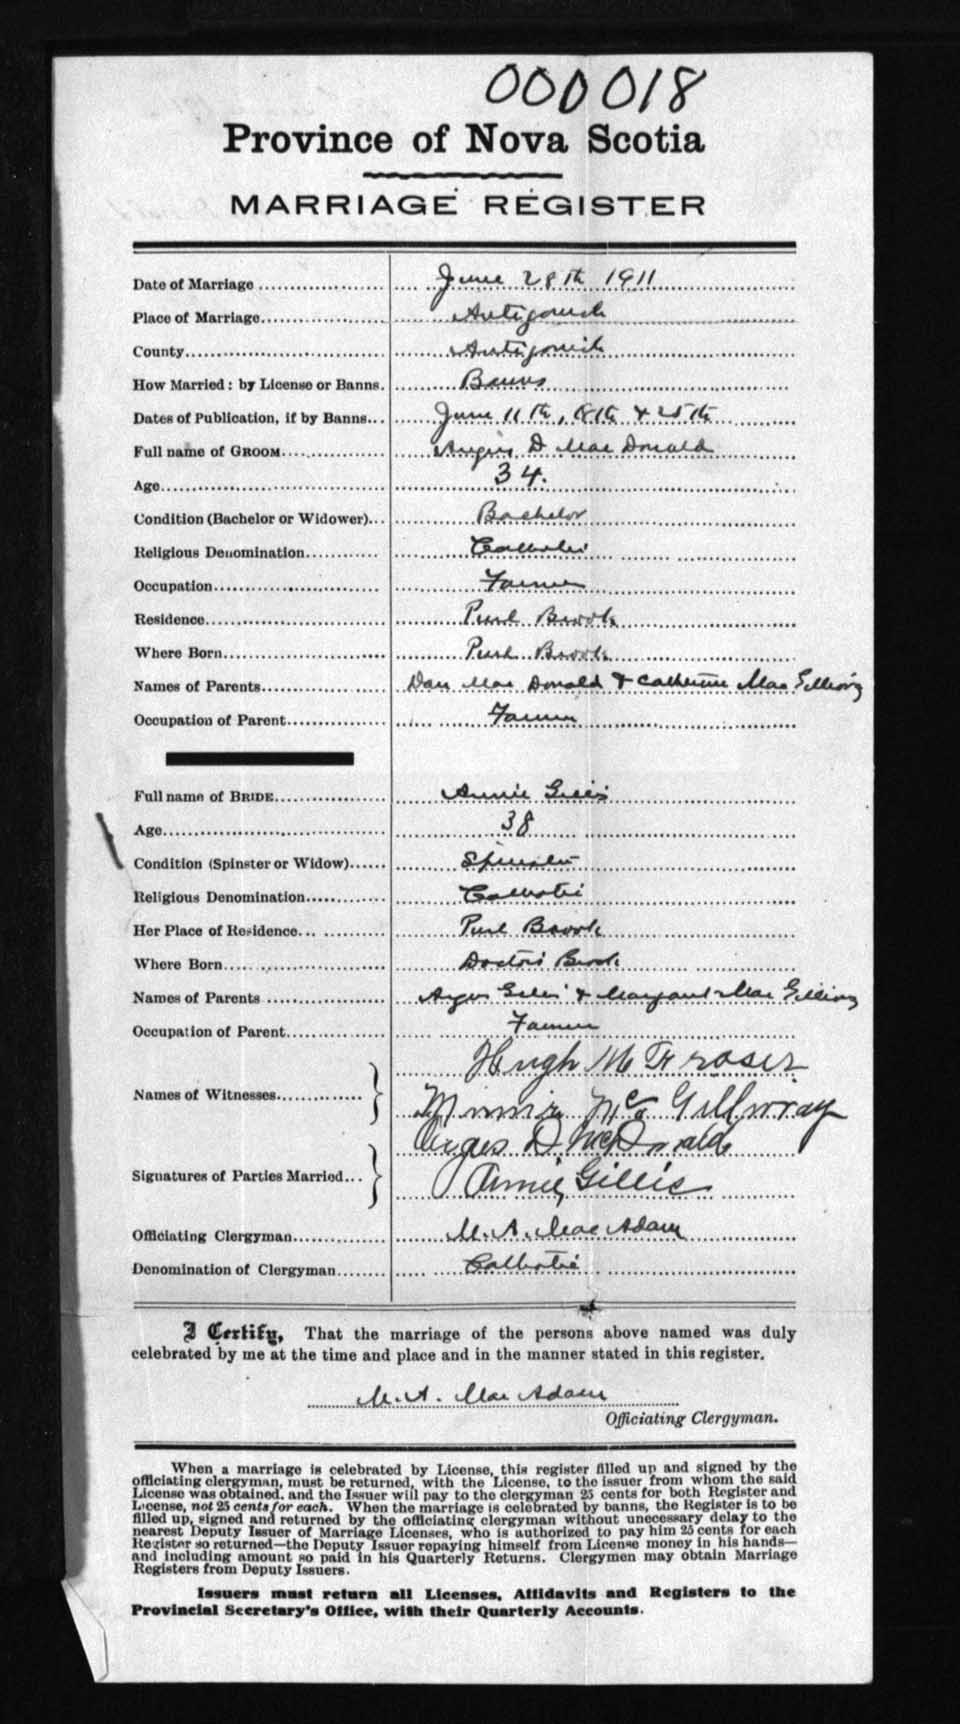 000018
Province of Nova Scotia
MARRIAGE REGISTER
Date of Marriage June 28th 1911
Place of Marriage Antigonish
County Antigonish
How Married: by License or Banns. Banns
Dates of Publication, if by Banns June 11th, 18th & 25th
Full name of GROOM Angus D MacDonald
Age 34.
Condition (Bachelor or Widower) Bachelor
Religious Denomination Catholic
Occupation Farmer
Residence Purl Brook
Where Born Purl Brook
Names of Parents Dan MacDonald & Catherine MacGillivray
Occupation of Parent Farmer
Full name of BRIDE Annie Gillis
Age 38
Condition (Spinster or Widow) Spinster
Religious Denomination Catholic
Her Place of Residence Purl Brook
Where Born Doctors Brook
Names of Parents Angus Gillis & Margaret MacGillivray
Occupation of Parent Farmer
Names of Witnesses Hugh McFraser
Minnie McGillivray
Signatures of Parties Married Angus D. McDonald
Annie Gillis
Officiating Clergyman M. A. MacAdam
Denomination of Clergyman Catholic
I Certify, That the marriage of the persons above named was duly
celebrated by me at the time and place and in the manner stated in this register.
M. A. MacAdam
Officiating Clergyman.
When a marriage is celebrated by License, this register filled up and signed by the
officiating clergyman, must be returned, with the License, to the issuer from whom the said
License was obtained, and the Issuer will pay to the clergyman 25 cents for both Register and
License, not 25 cents for each. When the marriage is celebrated by banns, the Register is to be
filled up, signed and returned by the officiating clergyman without unecessary delay to the
nearest Deputy Issuer of Marriage Licenses, who is authorized to pay him 25 cents for each
Register so returned—the Deputy Issuer repaying himself from License money in his hands—
and including amount so paid in his Quarterly Returns. Clergymen may obtain Marriage
Registers from Deputy Issuers.
Issuers must return all Licenses, Affidavits and Registers to the
Provincial Secretary's Office, with their Quarterly Accounts.